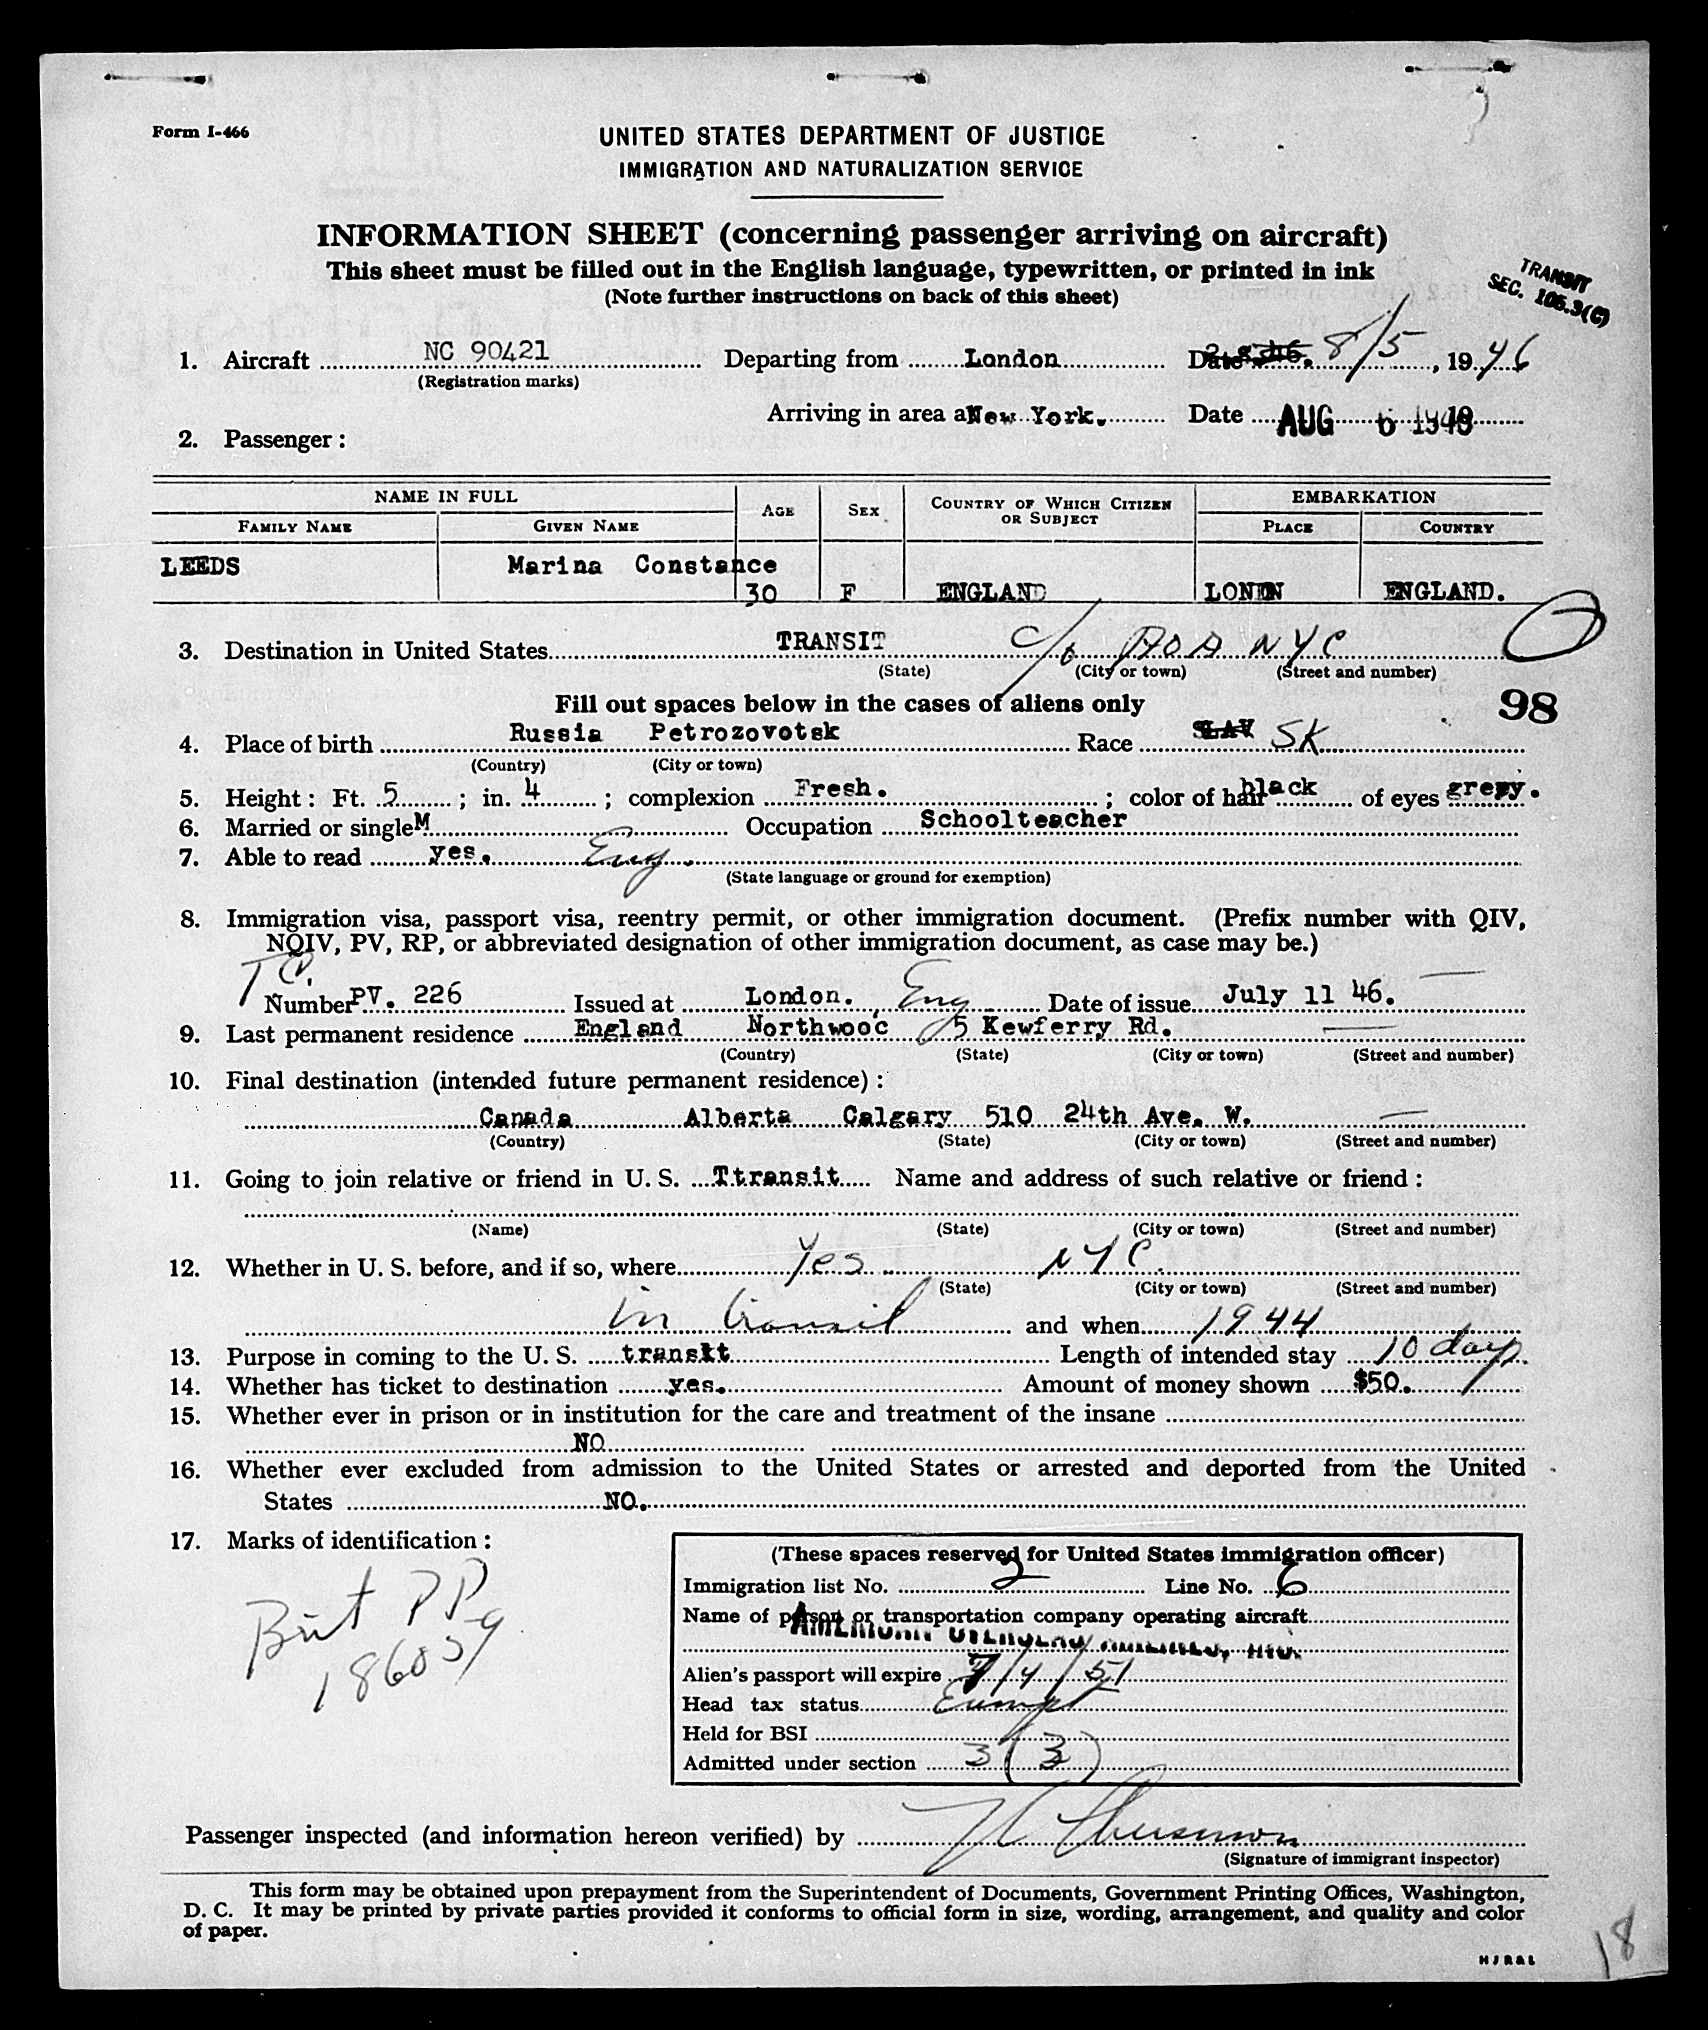 Form I-466
UNITED STATES DEPARTMENT OF JUSTICE
IMMIGRATION AND NATURALIZATION SERVICE
INFORMATION SHEET (concerning passenger arriving on aircraft)
This sheet must be filled out in the English language, typewritten, or printed in ink
(Note further instructions on back of this sheet)
TRANSIT
SEC. 105.3(C)
1. Aircraft NC 90421 Departing from London Date 8/5, 1946
(Registration marks)
Arriving in area a New York. Date AUG 6 1946 19
2. Passenger :
NAME IN FULL AGE SEX COUNTRY OF WHICH CITIZEN OR SUBJECT EMBARKATION
FAMILY NAME GIVEN NAME PLACE COUNTRY
LEEDS Marina Constance
30 F ENGLAND LONDON ENGLAND.
3. Destination in United States TRANSIT c/o AOA NYC
(State) (City or town) (Street and number)
Fill out spaces below in the cases of aliens only
98
4. Place of birth Russia Petrozovotsk Race SLAV SK
(Country) (City or town)
5. Height : Ft. 5 ; in. 4 ; complexion Fresh. ; color of hair black of eyes grey.
6. Married or single M Occupation Schoolteacher
7. Able to read yes. Eng.
(State language or ground for exemption)
8. Immigration visa, passport visa, reentry permit, or other immigration document. (Prefix number with QIV,
NQIV, PV, RP, or abbreviated designation of other immigration document, as case may be.)
T.C.
Number PV. 226 Issued at London. Eng Date of issue July 11 46.
9. Last permanent residence England Northwood 5 Kewferry Rd.
(Country) (State) (City or town) (Street and number)
10. Final destination (intended future permanent residence) :
Canada Alberta Calgary 510 24th Ave. W.
(Country) (State) (City or town) (Street and number)
11. Going to join relative or friend in U. S. Ttransit Name and address of such relative or friend :
(Name) (State) (City or town) (Street and number)
12. Whether in U. S. before, and if so, where Yes NYC.
(State) (City or town) (Street and number)
in transit and when 1944
13. Purpose in coming to the U. S. transit Length of intended stay 10 days.
14. Whether has ticket to destination yes. Amount of money shown $50.
15. Whether ever in prison or in institution for the care and treatment of the insane
NO
16. Whether ever excluded from admission to the United States or arrested and deported from the United
States NO.
17. Marks of identification :
Brit PP
186039
(These spaces reserved for United States immigration officer)
Immigration list No. 2 Line No. 6
Name of person or transportation company operating aircraft
American Overseas Airlines, Inc.
Alien's passport will expire 7/4/51
Head tax status Exempt
Held for BSI
Admitted under section 3(3)
Passenger inspected (and information hereon verified) by
(Signature of immigrant inspector)
This form may be obtained upon prepayment from the Superintendent of Documents, Government Printing Offices, Washington,
D. C. It may be printed by private parties provided it conforms to official form in size, wording, arrangement, and quality and color
of paper.
18